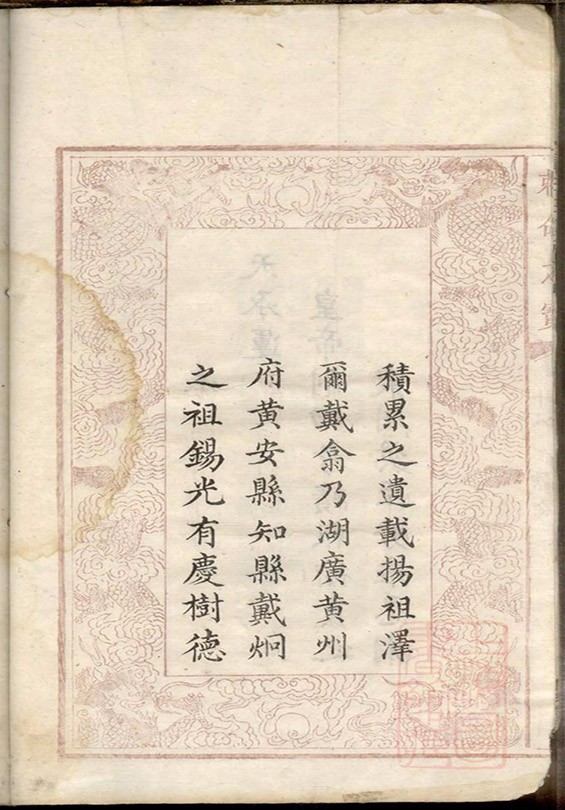 積累之遺載揚祖澤
爾戴翕乃湖廣黄州
府黄安縣知縣戴炯
之祖錫光有慶樹德